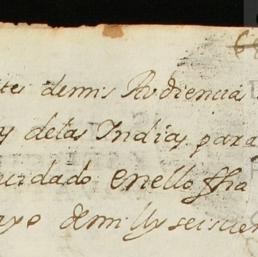 tes demis Audiencias
y delas Indias para
cuidado enello ffha
ayo demill y seicien